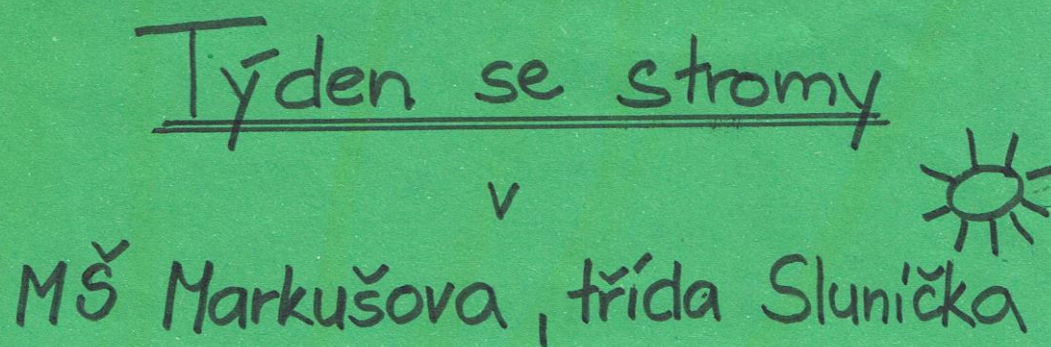 Týden se stromy
v
MŠ Markušova, třída Sluníčka